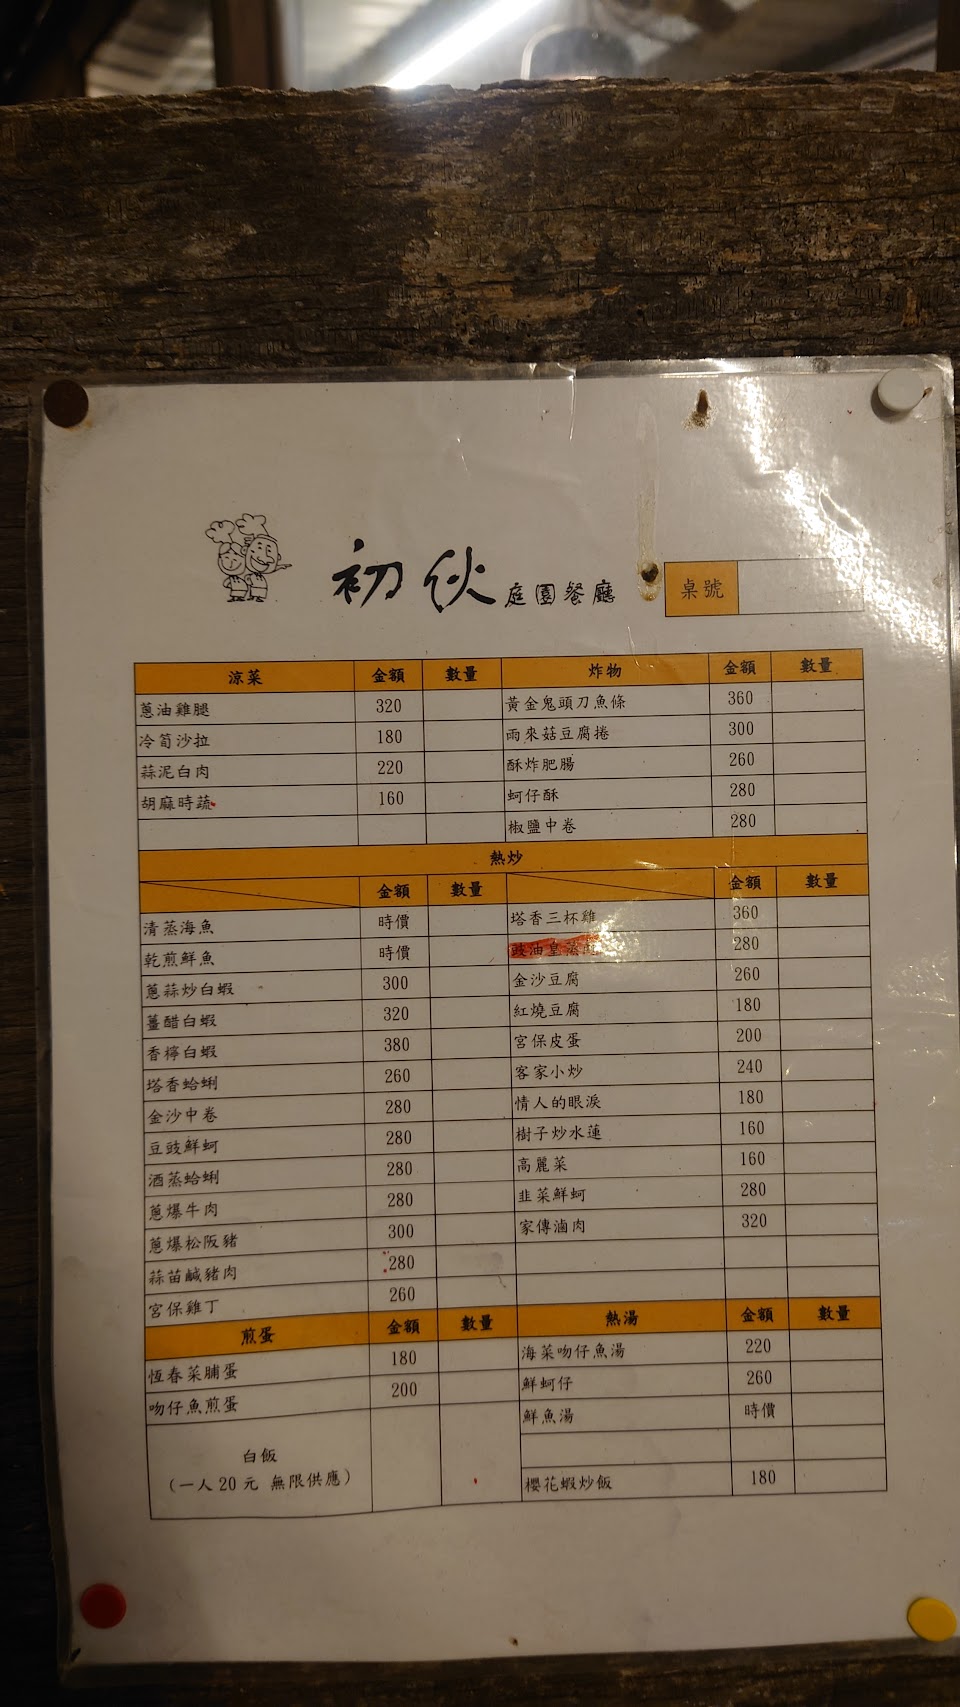 初伙 庭園餐廳
桌號
涼菜 金額 數量 炸物 金額 數量
蔥油雞腿 320 黃金鬼頭刀魚條 360
冷筍沙拉 180 雨來菇豆腐捲 300
蒜泥白肉 220 酥炸肥腸 260
胡麻時蔬 160 蚵仔酥 280
椒鹽中卷 280
熱炒
金額 數量 金額 數量
清蒸海魚 時價 塔香三杯雞 360
乾煎鮮魚 時價 豉油皇蒸 280
蔥蒜炒白蝦 300 金沙豆腐 260
薑醋白蝦 320 紅燒豆腐 180
香檸白蝦 380 宮保皮蛋 200
塔香蛤蜊 260 客家小炒 240
金沙中卷 280 情人的眼淚 180
豆豉鮮蚵 280 樹子炒水蓮 160
酒蒸蛤蜊 280 高麗菜 160
蔥爆牛肉 280 韭菜鮮蚵 280
蔥爆松阪豬 300 家傳滷肉 320
蒜苗鹹豬肉 280
宮保雞丁 260
煎蛋 金額 數量 熱湯 金額 數量
恆春菜脯蛋 180 海菜吻仔魚湯 220
吻仔魚煎蛋 200 鮮蚵仔 260
鮮魚湯 時價
白飯
（一人 20 元 無限供應）
櫻花蝦炒飯 180